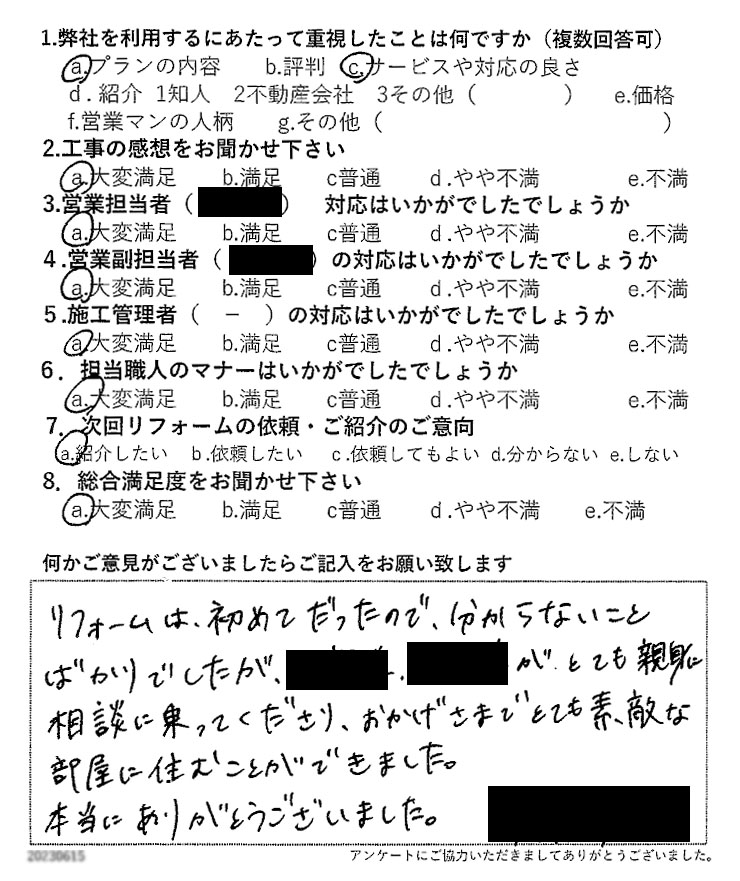 1.弊社を利用するにあたって重視したことは何ですか（複数回答可）
a.プランの内容 b.評判 c.サービスや対応の良さ
d.紹介 1知人 2不動産会社 3その他（ ） e.価格
f.営業マンの人柄 g.その他（ ）
2.工事の感想をお聞かせ下さい
a.大変満足 b.満足 c普通 d.やや不満 e.不満
3.営業担当者（ ） 対応はいかがでしたでしょうか
a.大変満足 b.満足 c普通 d.やや不満 e.不満
4.営業副担当者（ ）の対応はいかがでしたでしょうか
a.大変満足 b.満足 c普通 d.やや不満 e.不満
5.施工管理者（ － ）の対応はいかがでしたでしょうか
a.大変満足 b.満足 c普通 d.やや不満 e.不満
6．担当職人のマナーはいかがでしたでしょうか
a.大変満足 b.満足 c普通 d.やや不満 e.不満
7．次回リフォームの依頼・ご紹介のご意向
a.紹介したい b.依頼したい c.依頼してもよい d.分からない e.しない
8．総合満足度をお聞かせ下さい
a.大変満足 b.満足 c普通 d.やや不満 e.不満
何かご意見がございましたらご記入をお願い致します
リフォームは、初めてだったので、分からないこと
ばかりでしたが、 、 が、とても親身に
相談に乗ってくださり、おかげさまでとても素敵な
部屋に住むことができました。
本当にありがとうございました。
20230615
アンケートにご協力いただきましてありがとうございました。